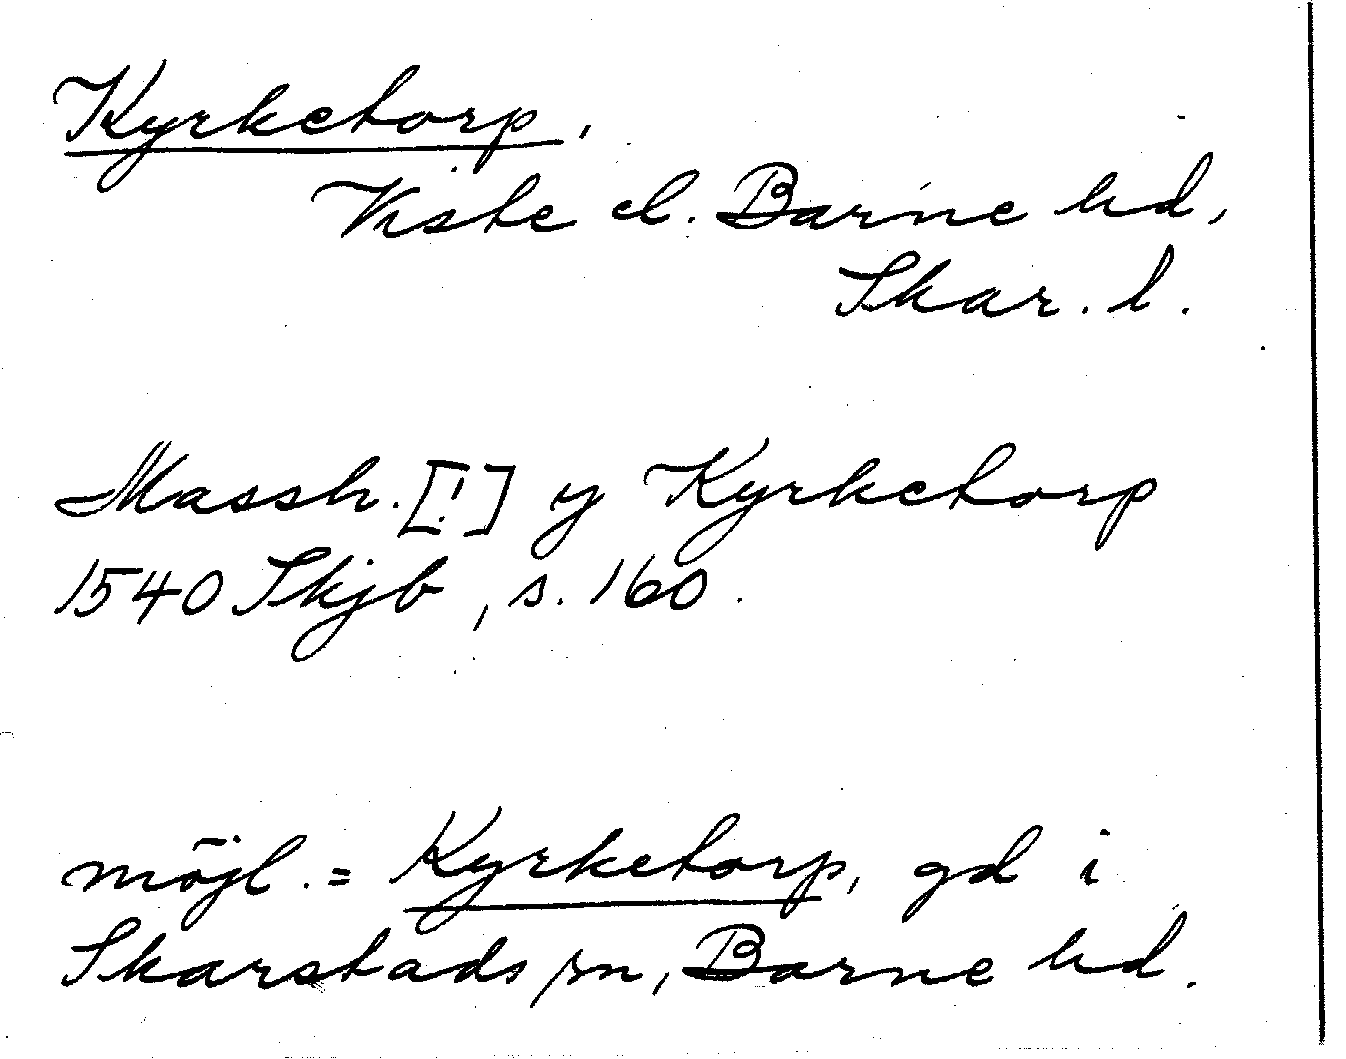 Kyrketorp,
Viste el. Barne hd,
Skar. l.
Massh. [!] y Kyrketorp
1540 Skjb, s. 160.
möjl. = Kyrketorp, gd i
Skarstads sn, Barne hd.